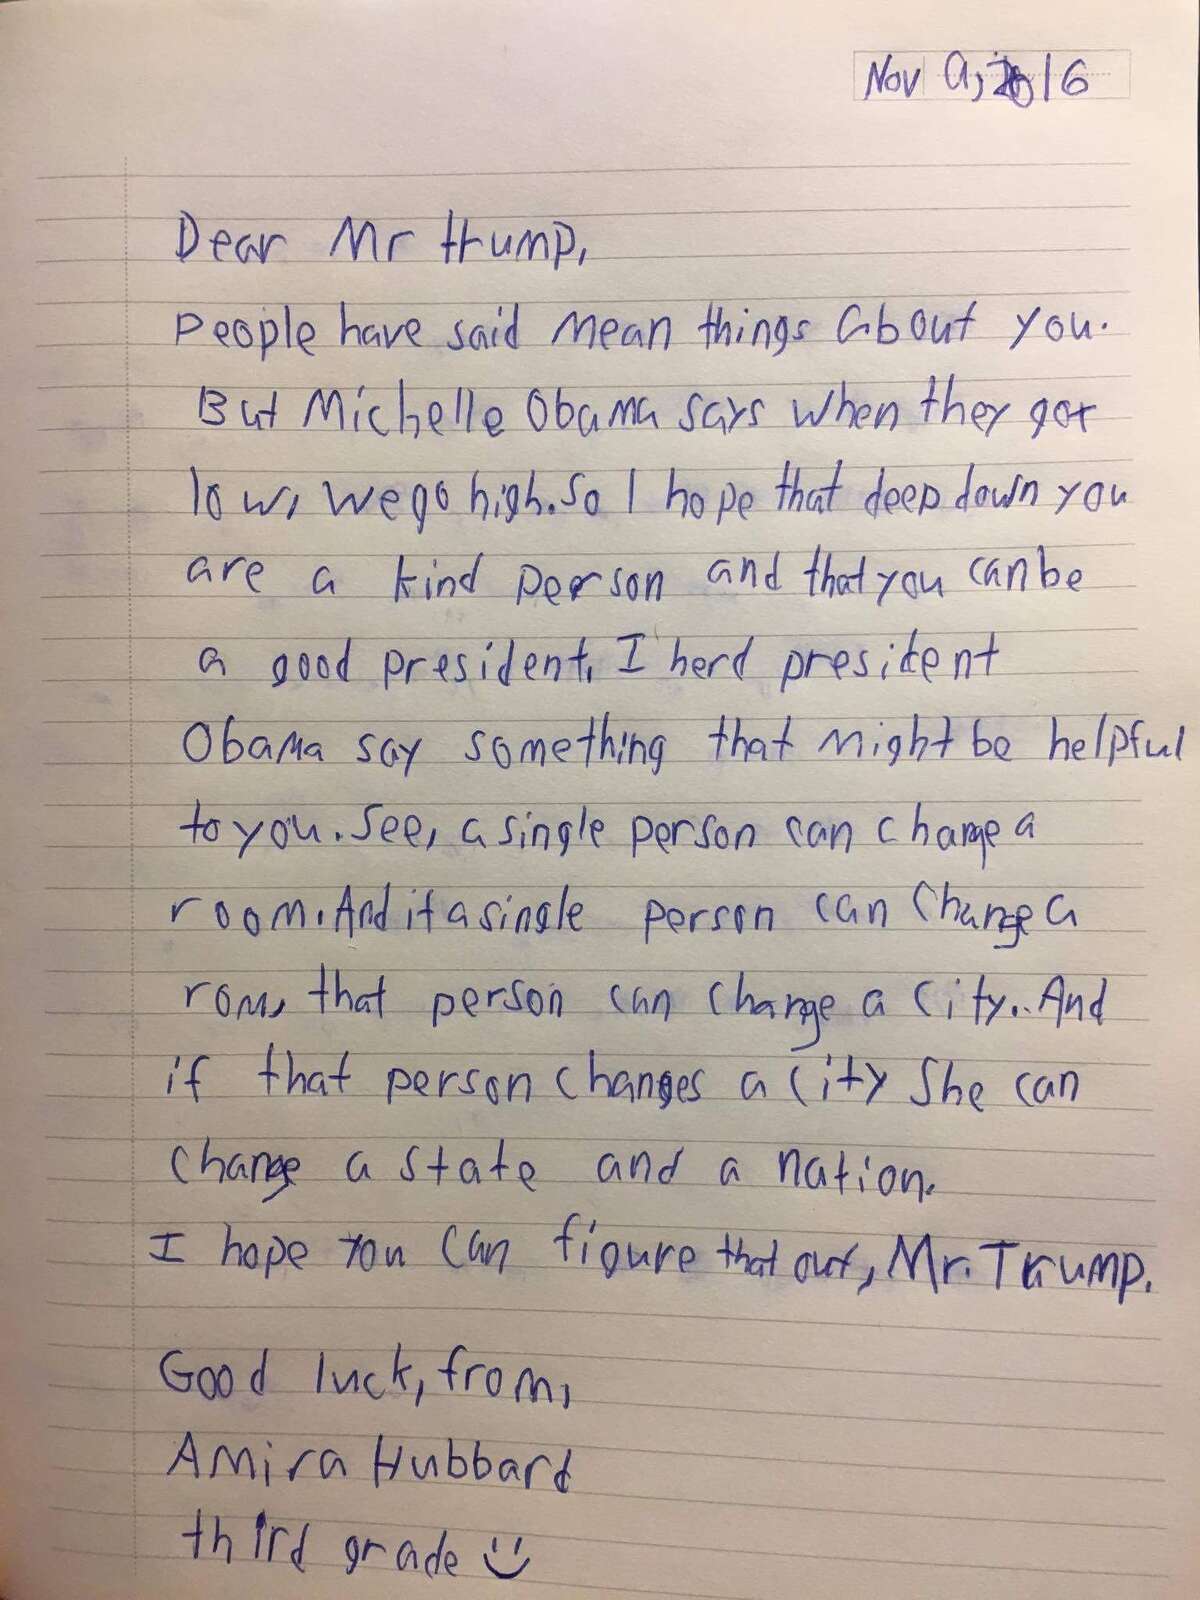 Nov 9, 2016
Dear Mr trump,
People have said mean things about you.
But Michelle Obama says when they got
low, we go high. So I hope that deep down you
are a kind person and that you can be
a good president. I herd president
Obama say something that might be helpful
to you. See, a single person can change a
room. And if a single person can change a
rom, that person can change a city.. And
if that person changes a city she can
change a state and a nation.
I hope you can figure that out, Mr. Trump.
Good luck, from,
Amira Hubbard
third grade